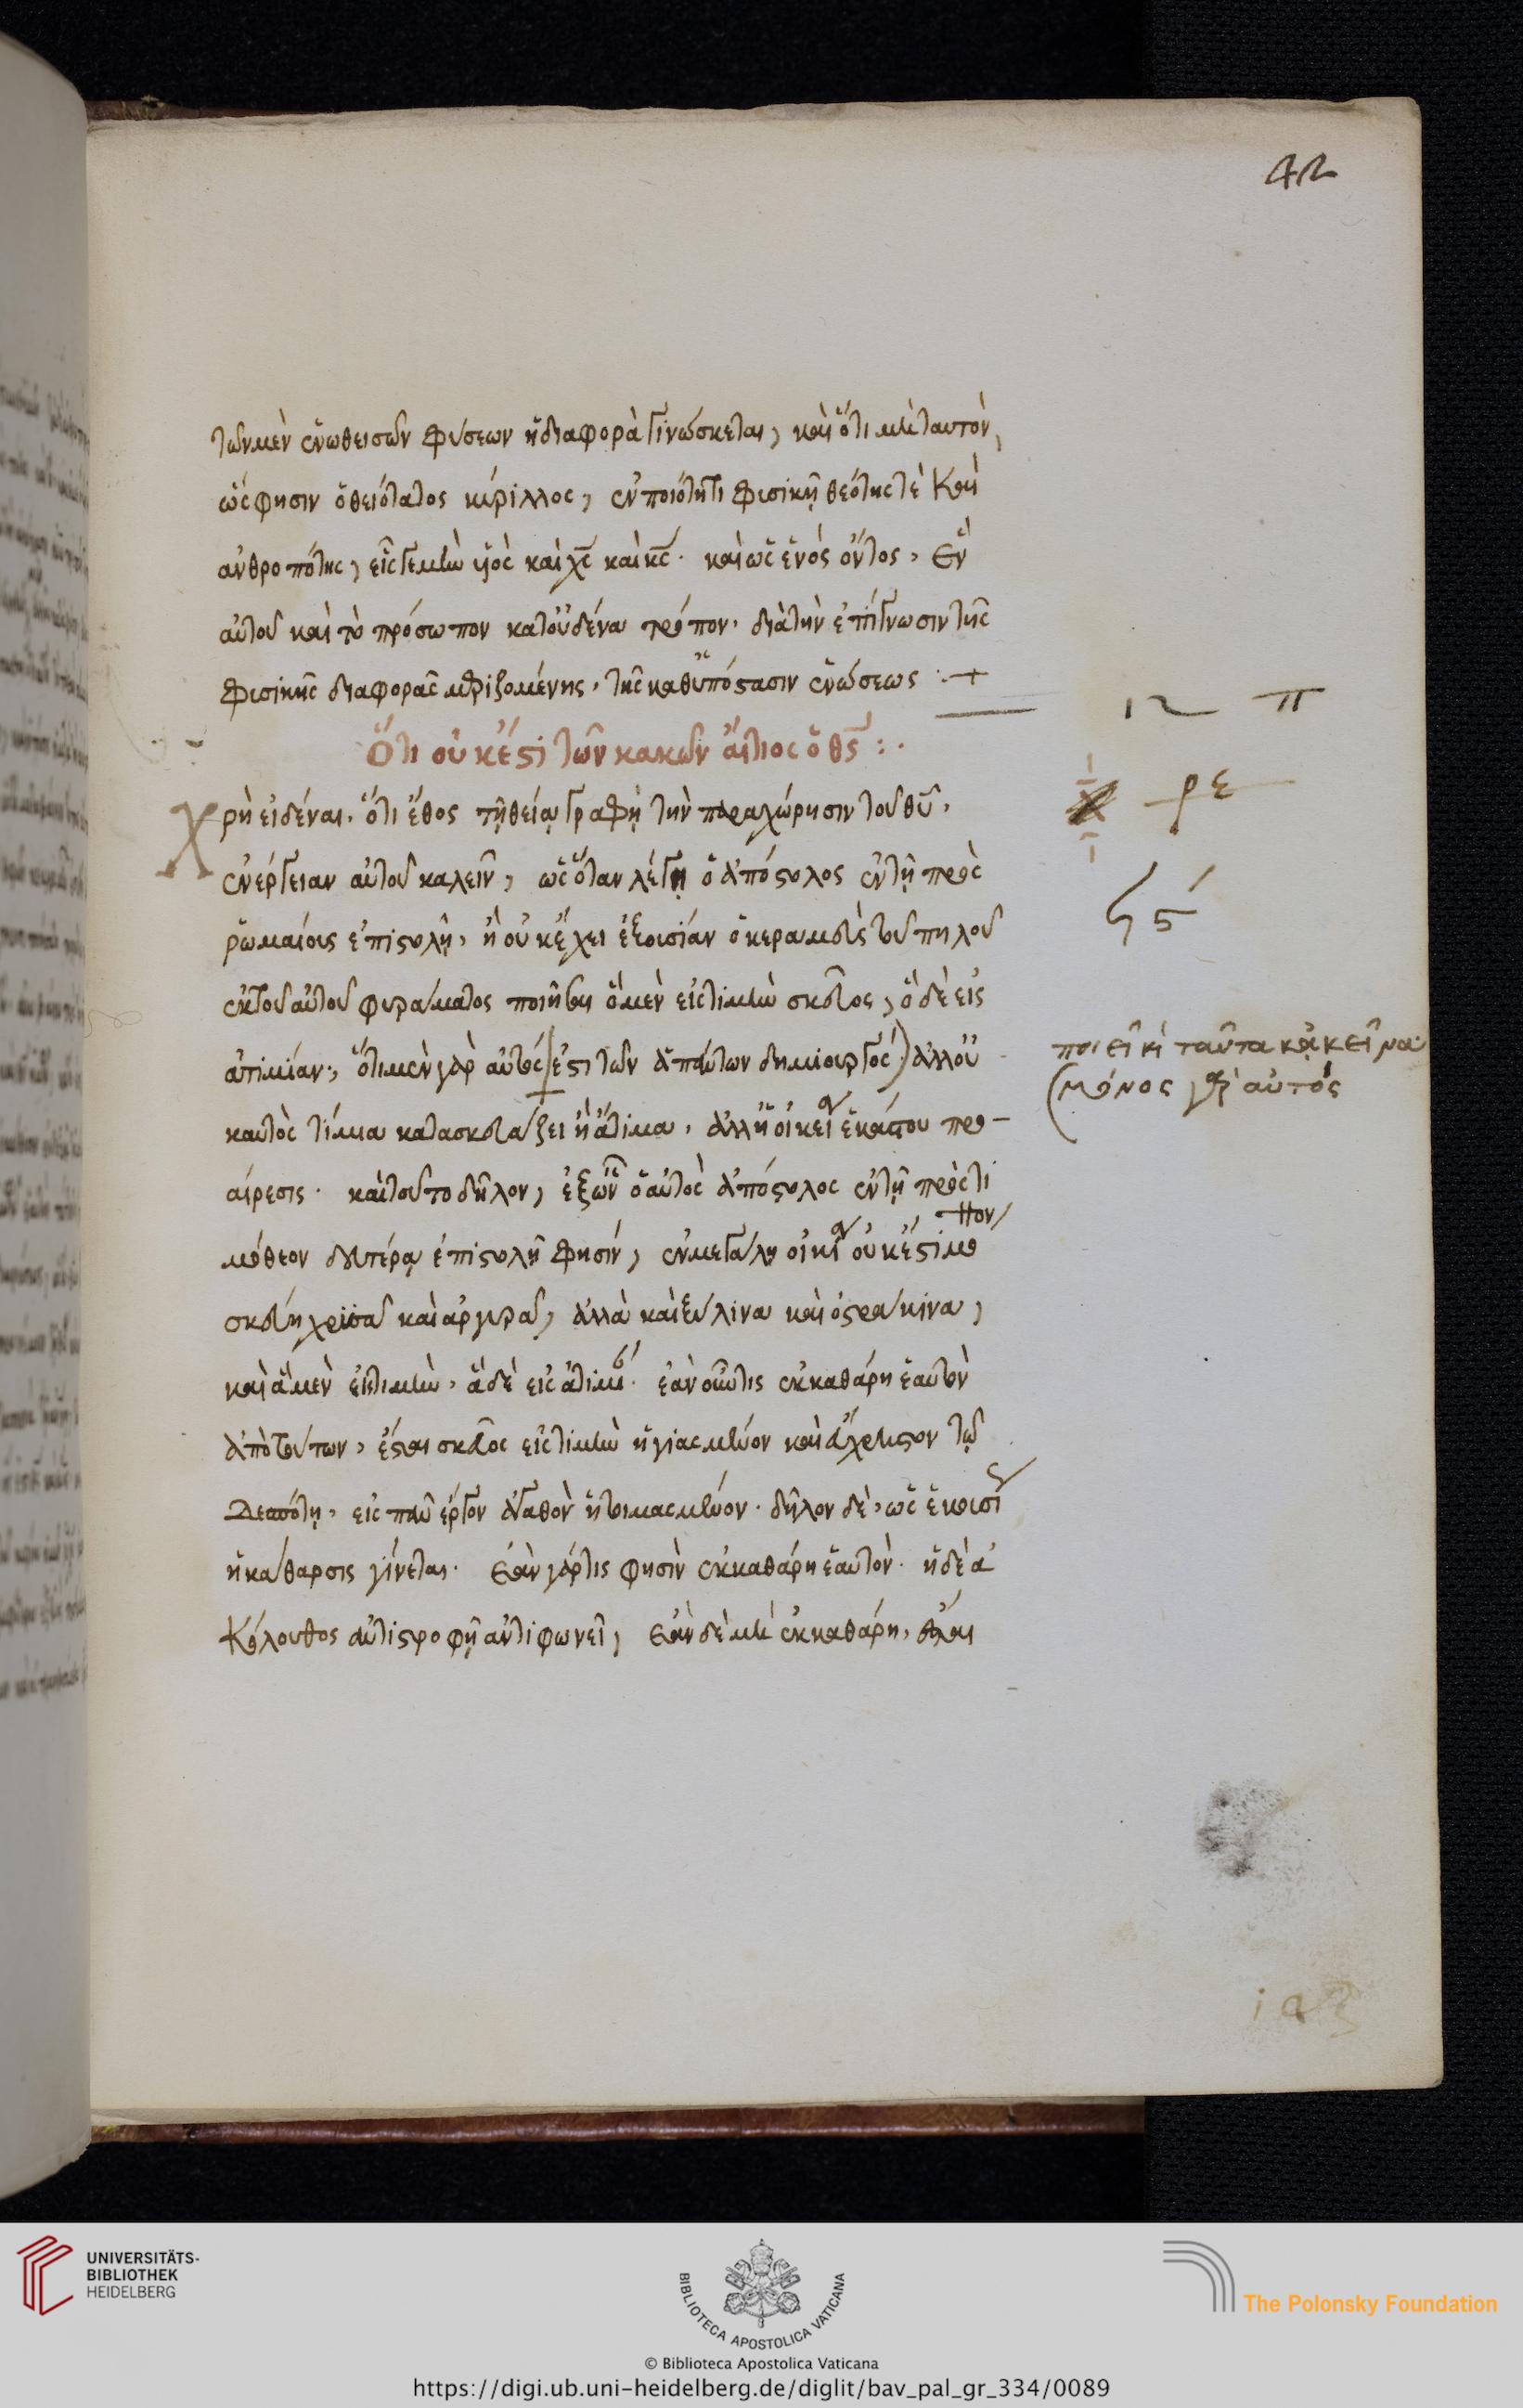 42
τῶν μὲν ἑνωθεισῶν φύσεων ἡ διαφορὰ γινώσκεται, καὶ ὅτι μὴ ταυτὸν,
ὥς φησιν ὁ θειότατος κύριλλος, ἐν ποιότητι φισικῇ θεότης τὲ Καὶ
ἀνθροπότης, εἷς γεμὴν υἱὸς καὶ χς καὶ κς. καὶ ὡς ἑνὸς ὄντος, Ἓν
αὐτοῦ καὶ τὸ πρόσωπον κατοὐδένα τρόπον, διὰ τὴν ἐπίγνωσιν τῆς
φισικῆς διαφορᾶς μεριζομένης, τῆς καθ ὑπόστασιν ἑνώσεως :+
Ὅτι οὐκ ἔστι τῶν κακῶν αἴτιος ὁ θς :.
Χρὴ εἰδέναι, ὅτι ἔθος τῇ θείᾳ γραφῇ τὴν παραχώρησιν τοῦ θυ,
ἐνέργειαν αὐτοῦ καλεῖν, ὡς ὅταν λέγῃ ὁ ἀπόστολος ἐν τῇ πρὸς
ῥωμαίοις ἐπιστολῇ, ἢ οὐκ ἔχει ἐξουσίαν ὁ κεραμεὺς τοῦ πηλοῦ
ἐκ τοῦ αὐτοῦ φυράματος ποιῆσαι ὃ μὲν εἰς τιμὴν σκεῦος, ὃ δὲ εἰς
ἀτιμίαν, ὅτι μὲν γὰρ αὐτός ἐστι τῶν ἁπάντων δημιουργός) ἀλλ οὐ
ποιεῖ κὶ ταῦτα κἀκεῖνα
(μόνος γὰρ αὐτὸς
καυτὸς τίμια κατασκευάζει ἢ ἄτιμα, ἀλλ ἡ οἰκεία ἑκάστου προ-
αίρεσις. καὶ τοῦτο δῆλον, ἐξ ὧν ὁ αὐτὸς ἀπόστολος ἐν τῇ πρὸς τι
μόθεον δευτέρᾳ ἐπιστολῇ φησίν, ἐν μεγάλῃ οἰκίᾳ οὐκ ἔστι μο
νον
σκεύη χρισᾶ καὶ ἀργυρᾶ, ἀλλὰ καὶ ξύλινα καὶ ὀστράκινα,
καὶ ἃ μὲν εἰς τιμὴν, ἃ δὲ εἰς ἀτιμί. ἐὰν οὖν τις ἐκκαθάρη ἑαυτὸν
ἀπὸ τούτων, ἔσται σκεῦος εἰς τιμὴν ἡγιασμένον καὶ εὔχρηστον τῷ
Δεσπότῃ, εἰς πᾶν ἔργον ἀγαθὸν ἡτοιμασμένον. δῆλον δὲ, ὡς ἑκουσί
ἡ κάθαρσις γίνεται. Ἐὰν γάρ τις φησὶν ἐκκαθάρη ἑαυτὸν. ἡ δὲ ἀ
Κόλουθος ἀντιστροφῇ ἀντιφωνεῖ, Ἐὰν δὲ μὴ ἐκκαθάρη, ἔσται
UNIVERSITÄTS-
BIBLIOTHEK
HEIDELBERG
BIBLIOTECA APOSTOLICA VATICANA
The Polonsky Foundation
© Biblioteca Apostolica Vaticana
https://digi.ub.uni-heidelberg.de/diglit/bav_pal_gr_334/0089